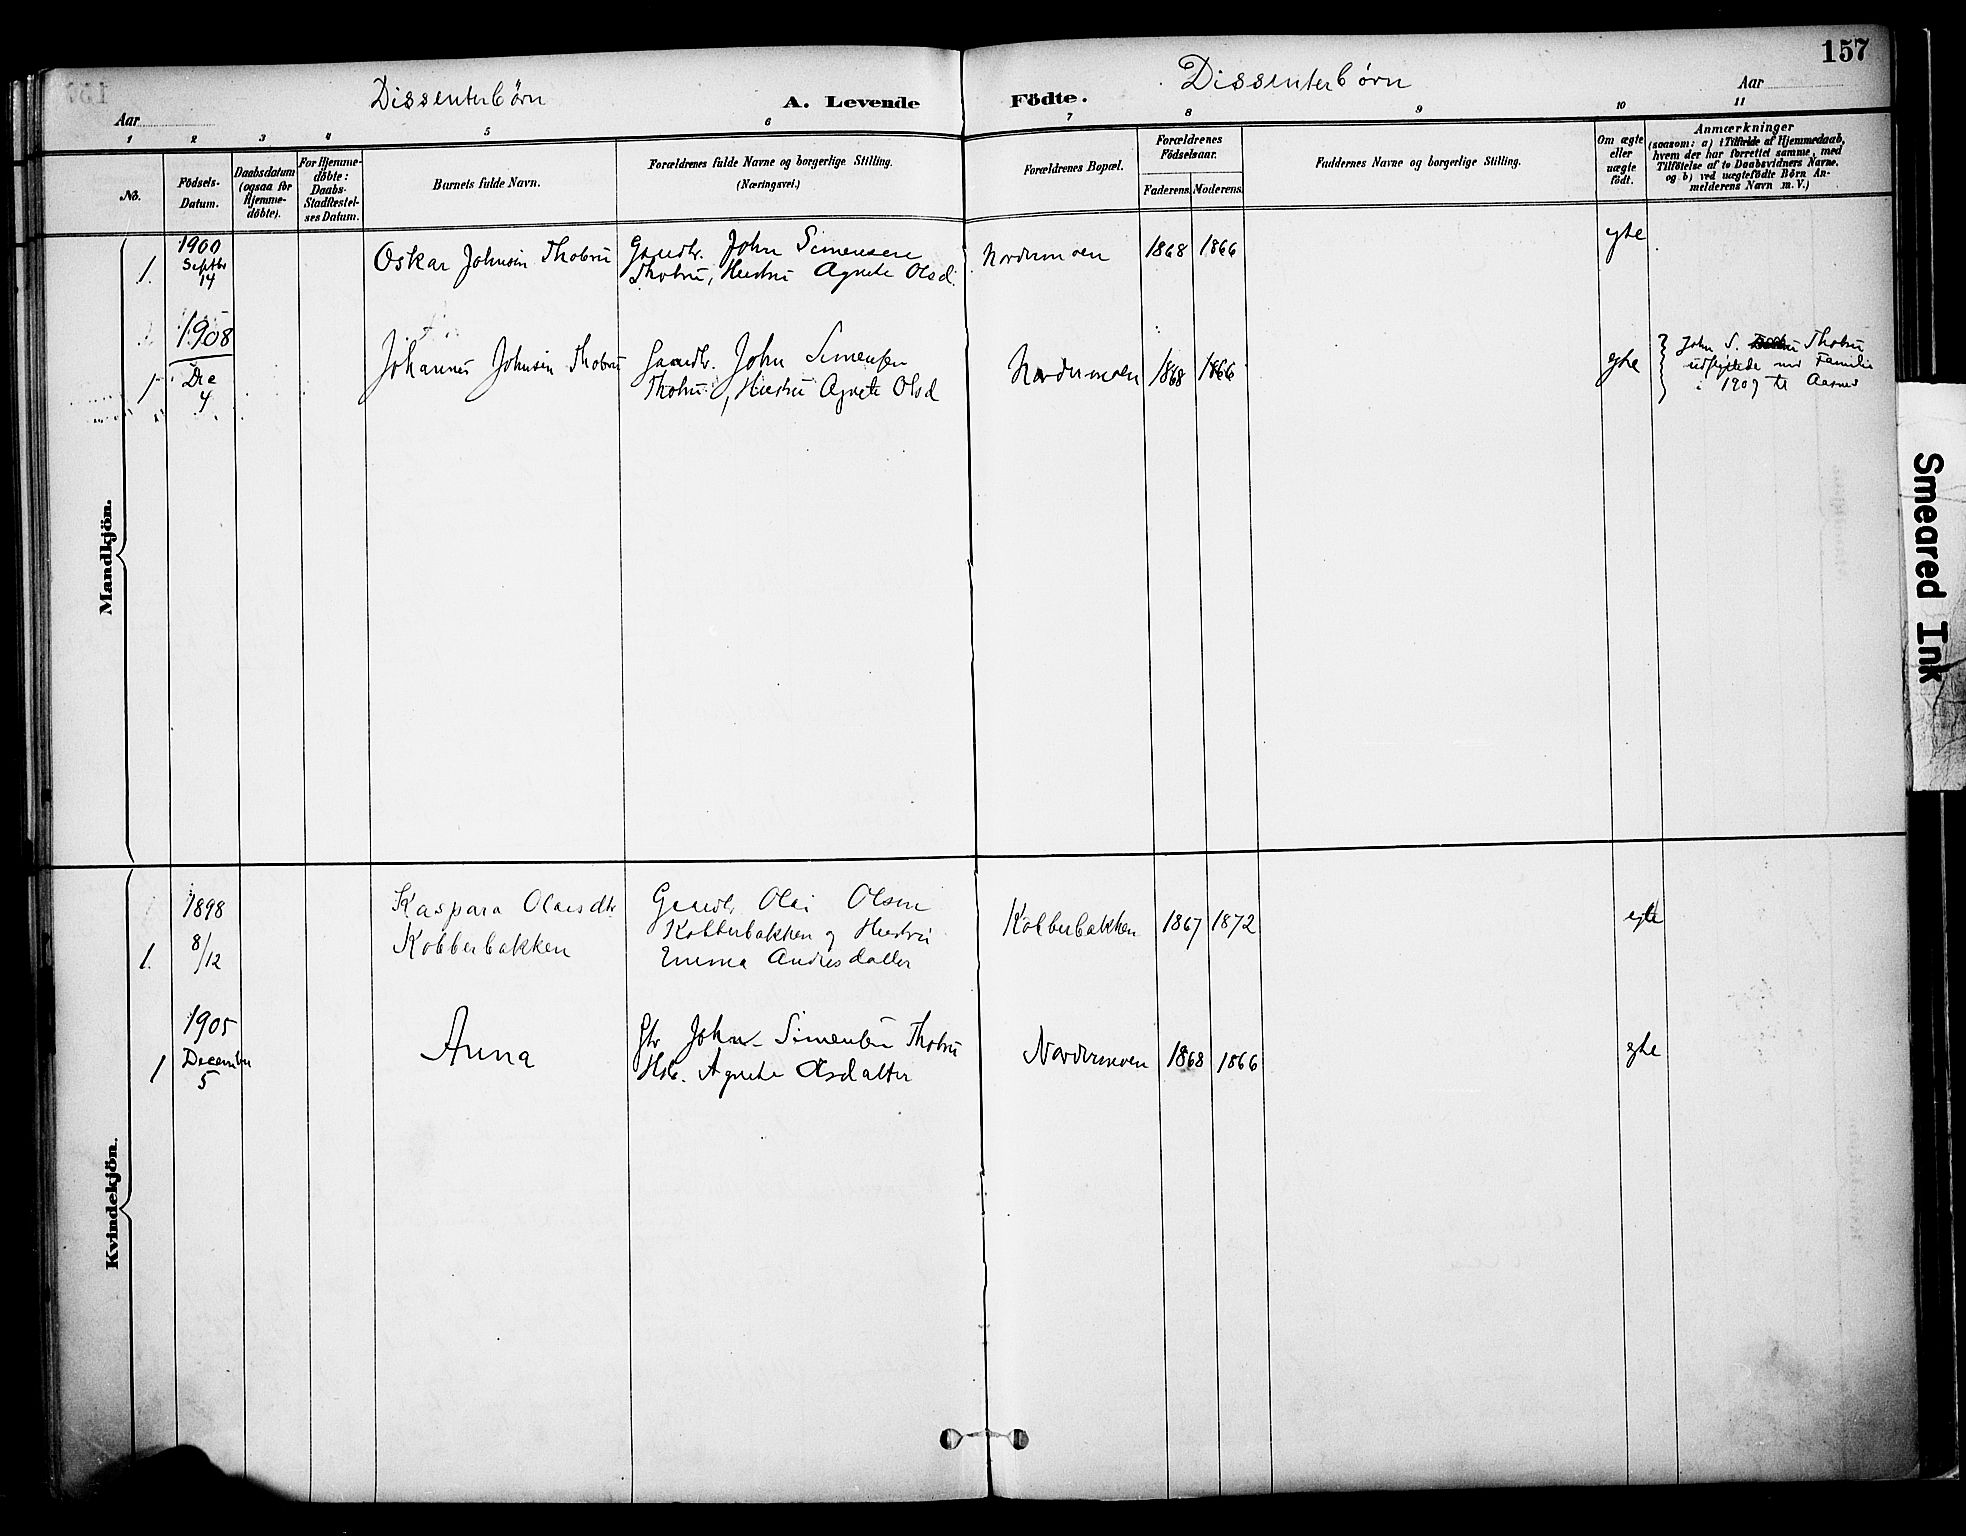 157
Dissenterbørn
A. Levende
Födte.
Dissenterbørn
Aar
Aar
1 2 3 4 5 6 7 8 9 10 11
No.
Födsels-
Datum.
Daabsdatum
(ogsaa for
Hjemme-
döbte).
For Hjemme-
döbte:
Daabs-
Stadfæstel-
ses Datum.
Barnets fulde Navn.
Forældrenes fulde Navne og borgerlige Stilling.
(Næringsvei.)
Forældrenes Bopæl.
Forældrenes
Födselsaar.
Faderens. Moderens.
Faddernes Navne og borgerlige Stilling.
Om ægte
eller
uægte
födt.
Anmærkninger
(saasom: a) i Tilfælde af Hjemmedaab,
hvem der har forrettet samme, med
Tilföielse af to Daabsvidners Navne,
og b) ved uægtefödte Börn An-
melderens Navn m. V.)
Mandkjön.
1.
1900
Septbr
14
Oskar Johnsen Thobru
Gaardbr. John Simensen
Thobru, Hustru Agnete Olsd.
Nordermoen
1868
1866
egte
1
1908
Dec
4
Johannes Johnsen Thobru
Gaardbr. John Simensen
Thobru, Hustru Agnete Olsd
Nordermoen
1868
1866
egte
John S. Thobru
udflyttede med Familie
i 1909 til Aasnes
Kvindekjön.
1.
1898
8/12
Kaspara Olaisdtr
Kobberbakken
Gaardbr. Olai Olsen
Kobberbakken og Hustru
Emma Andersdatter
Kobberbakken
1867
1872
egte
1
1905
December
5
Anna
Gbr John Simensen Thobru
Hst. Agnete Olsdatter
Nordermoen
1868
1866
egte
Smeared Ink